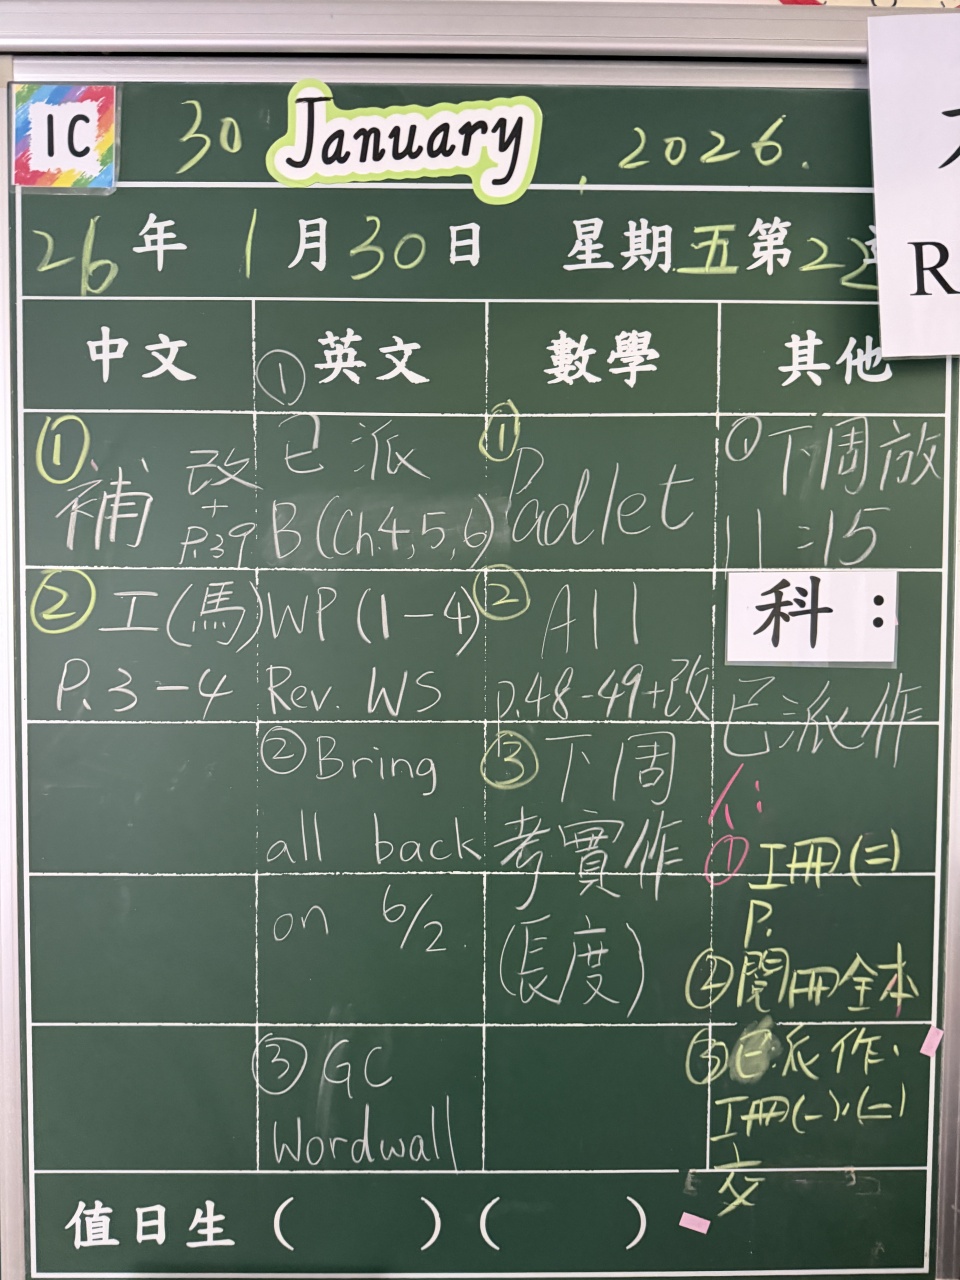 1C
30 January, 2026.
26年1月30日 星期五第22
中文
① 補 改
+
P.39
② 工(馬)
P.3-4
英文
① 已派
B(Ch.4,5,6)
WP(1-4)
Rev. WS
② Bring
all back
on 6/2.
③ GC
Wordwall
數學
① Padlet
② All
P.48-49+改
③ 下周
考實作
(長度)
其他
① 下周放
11:15
科:
已派作
人:
① 工冊(二)
P.
② 閱冊全本
③ 已派作.
工冊(一)、(二)
交
值日生( )( )
R